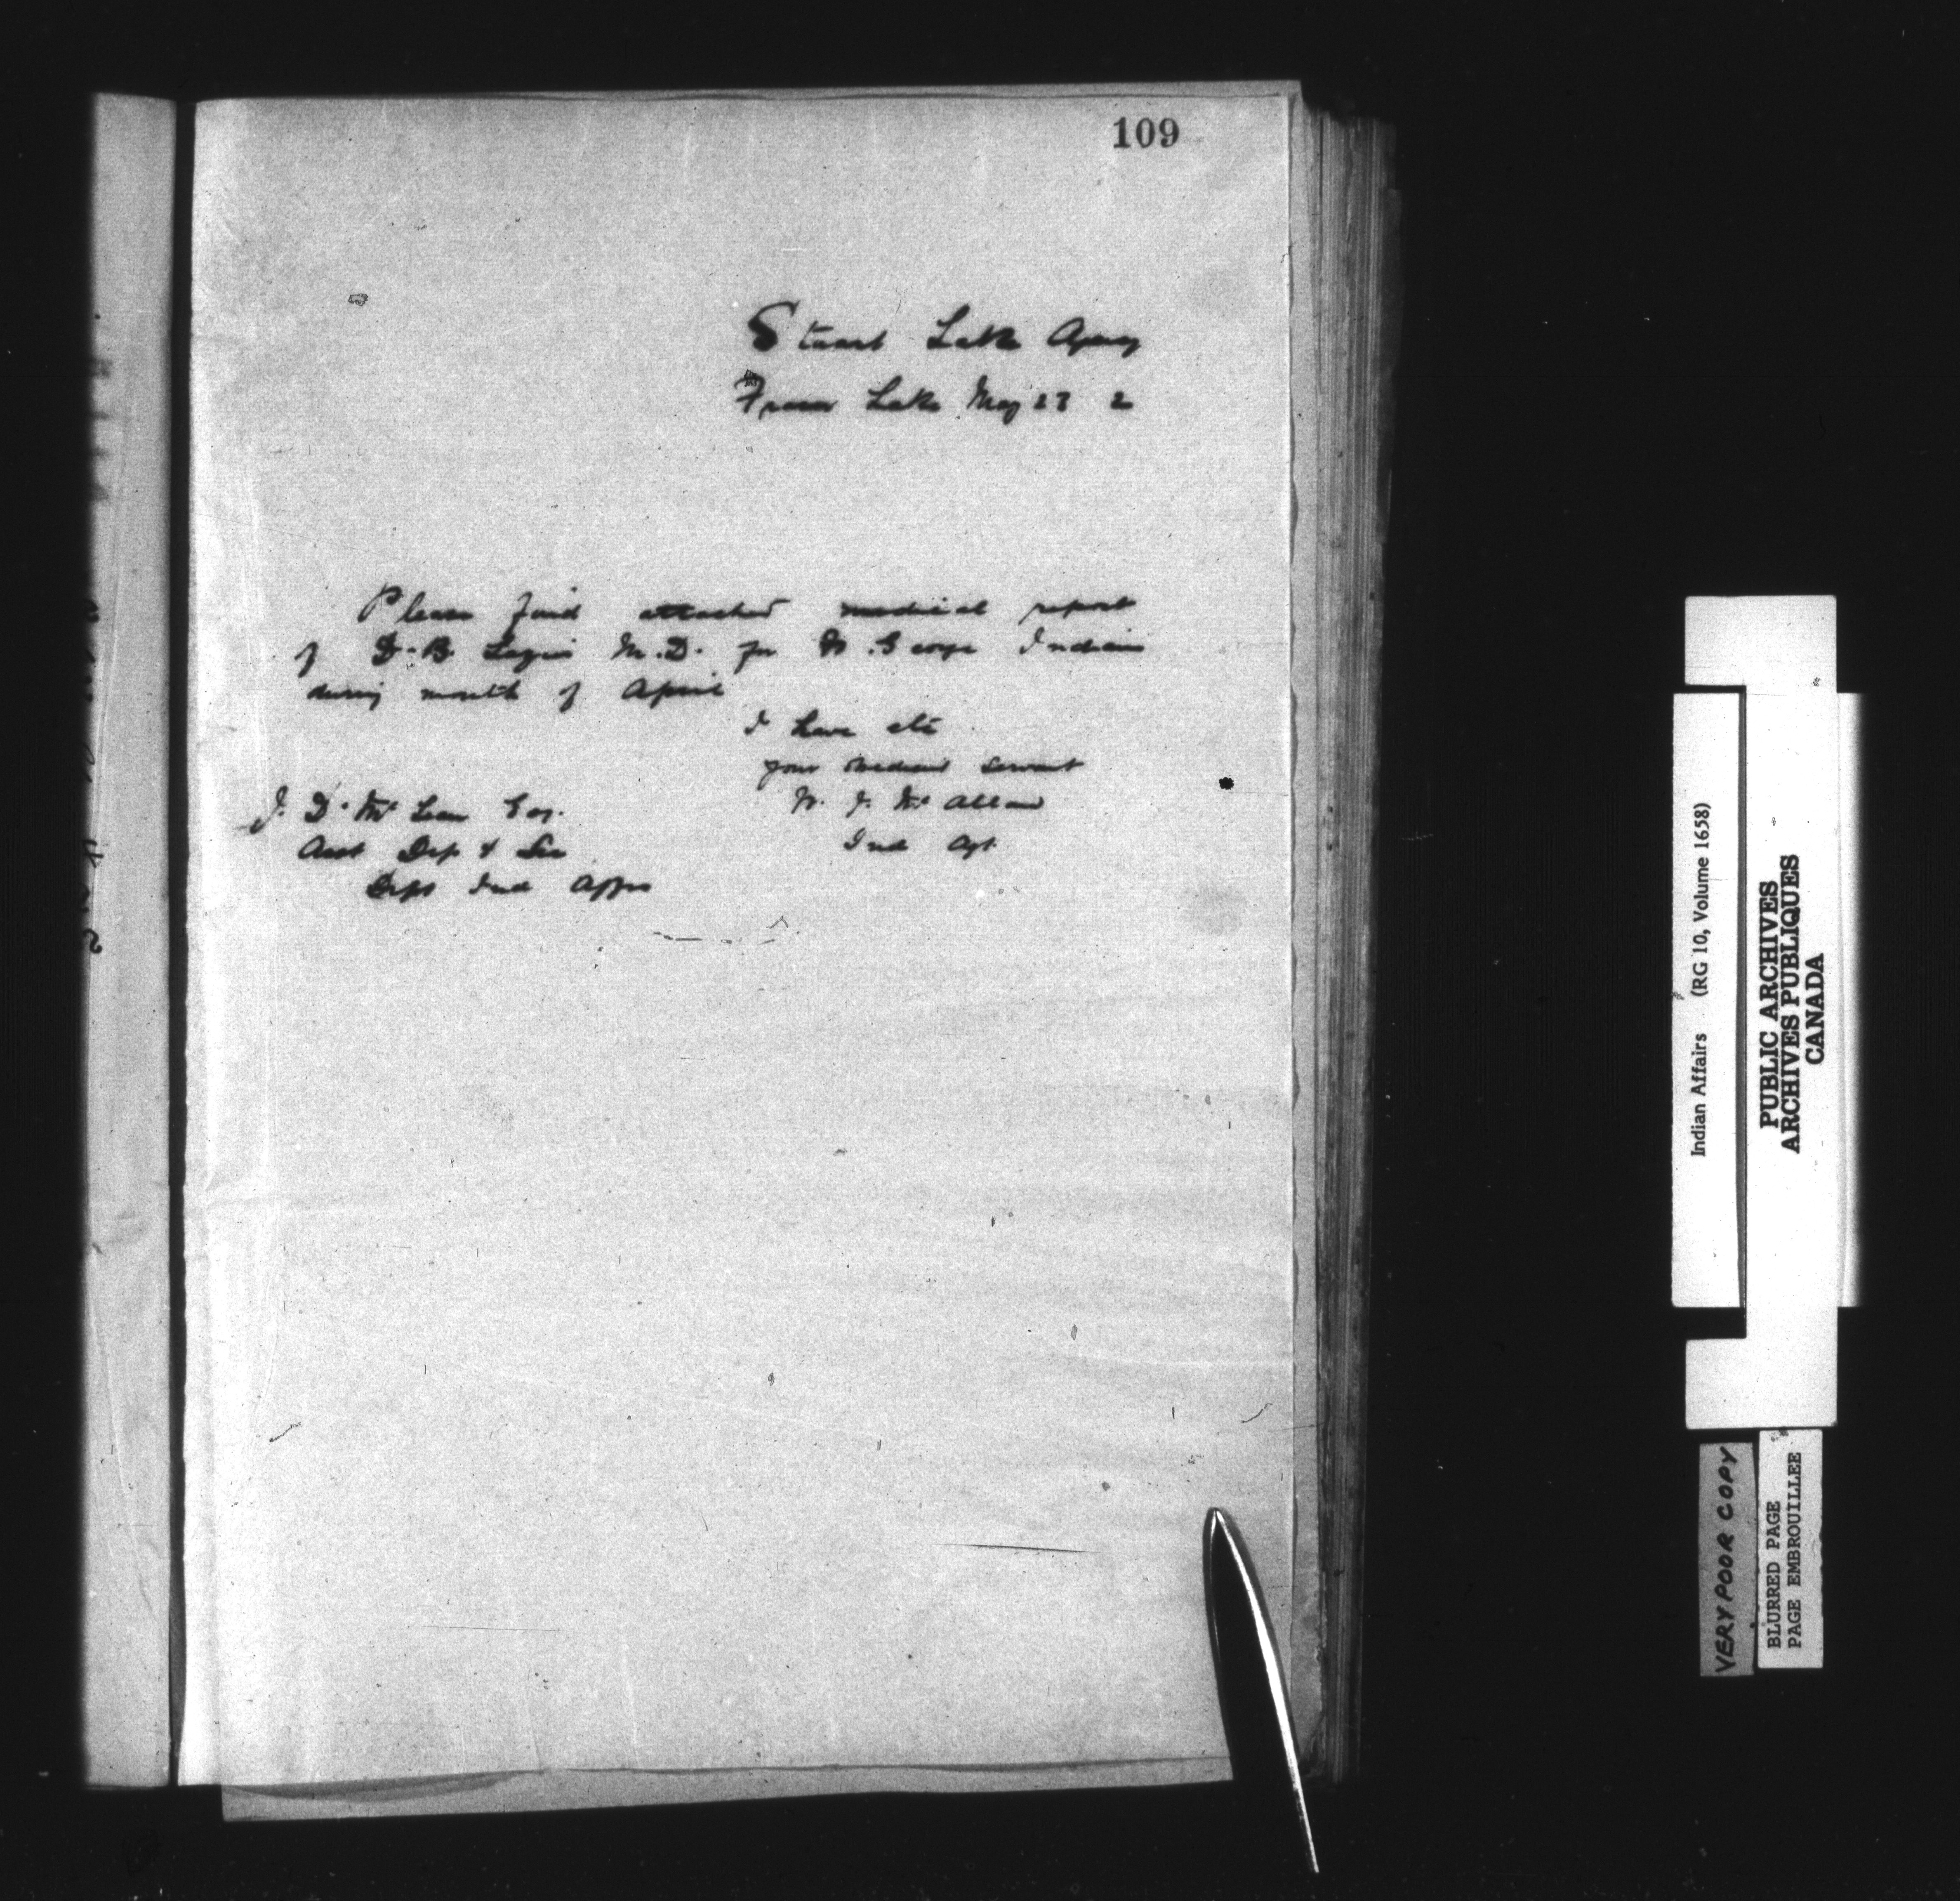 109
Stuart Lake Agency
Fraser Lake May 23 2
Please find attached medical report
of D. B. Lazier M.D. for Ft. George Indians
during month of April
I have etc
your obedient servant
W. J. McAllan
Ind Agt.
J. D. McLean Esq.
Asst Dep & Sec
Dept Ind Affrs
Indian Affairs (RG 10, Volume 1658)
PUBLIC ARCHIVES
ARCHIVES PUBLIQUES
CANADA
VERY POOR COPY
BLURRED PAGE
PAGE EMBROUILLEE